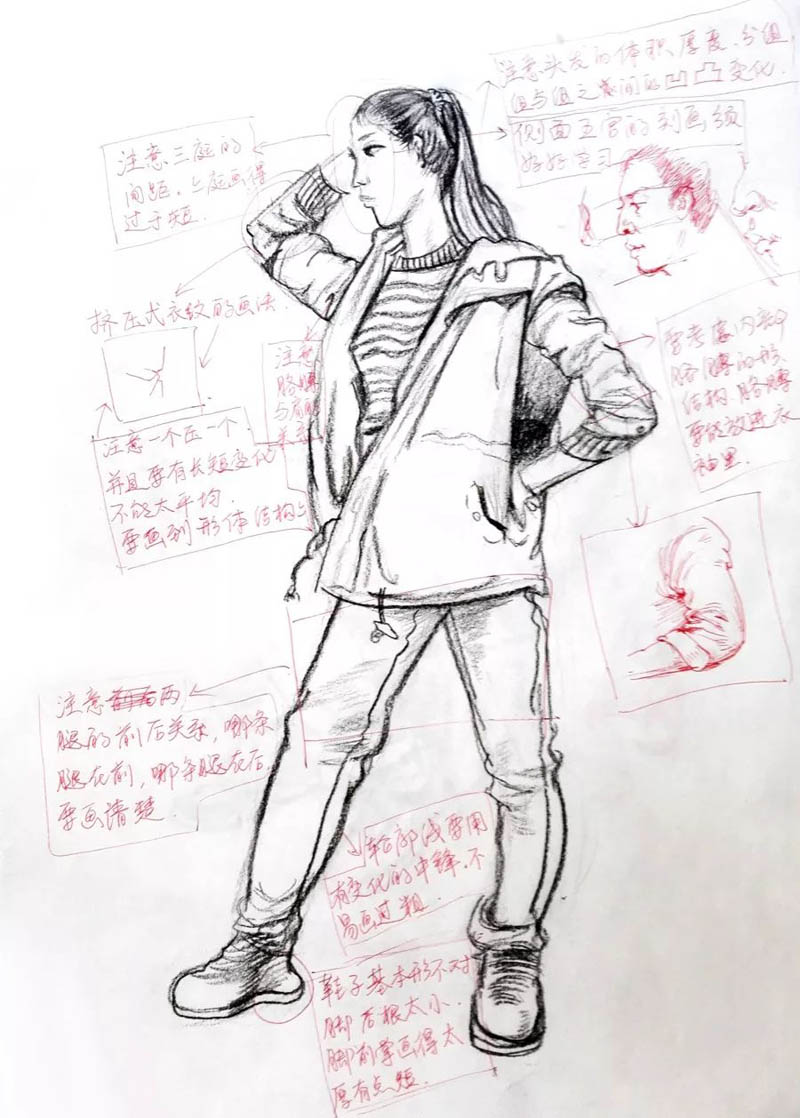 注意头发的体积、厚度、分组
组与组之间的凹凸变化
侧面五官的刻画须
好好学习
注意三庭的
间距.上庭画得
过于短.
挤压式衣纹的画法.
注意
胳膊
与肩
关系
要考虑内在
胳膊的形
结构.胳膊
要能放进衣
袖里.
注意一个压一个.
并且要有长短变化
不能太平均.
要画到形体结构上
注意两
腿的前后关系,哪条
腿在前,哪条腿在后.
要画清楚
轮廓线要用
有变化的中锋.不
易画过粗.
鞋子基本形不对
脚后根太小.
脚前掌画得太
厚有点短.